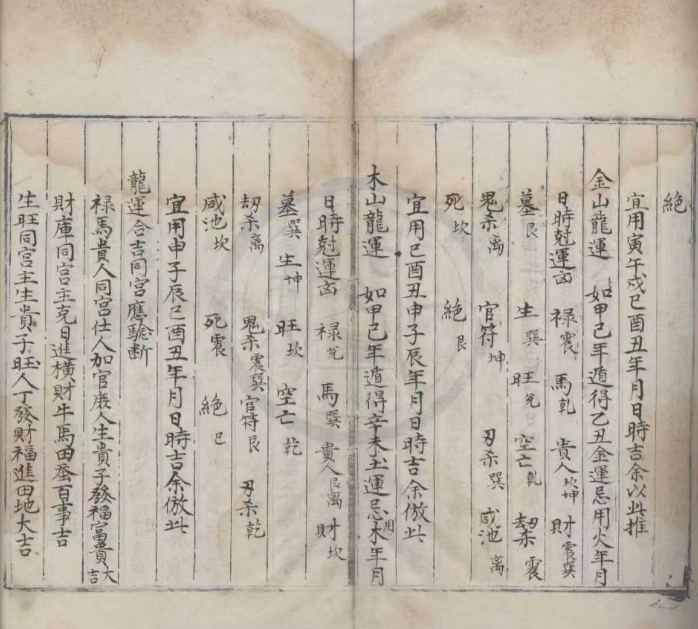 絶
宜用寅午戌巳酉丑年月日時吉余以此推
金山龍運 如甲己年遁得乙丑金運忌用火年月
日時尅運凶 禄震 馬乾 貴人坎坤 財震巽
墓艮 生巽 旺兊 空亡乾 刼杀震
鬼杀离 官符坤 刃杀巽 咸池离
死坎 絶艮
宜用巳酉丑申子辰年月日時吉余倣此
木山龍運 如甲己年遁得辛未土運忌用木年月
日時尅運凶 禄兊 馬巽 貴人艮离 財坎
墓巽 生坤 旺坎 空亡乾
刼杀离 鬼杀震巽 官符艮 刃杀乾
咸池坎 死震 絶巳
宜用申子辰巳酉丑年月日時吉余倣此
龍運合吉同宮應驗断
禄馬貴人同宮仕人加官庶人生貴子發福富貴大吉
財庫同宮主克日進横財牛馬田蚕百事吉
生旺同宮主生貴子旺人丁發財福進田地大吉